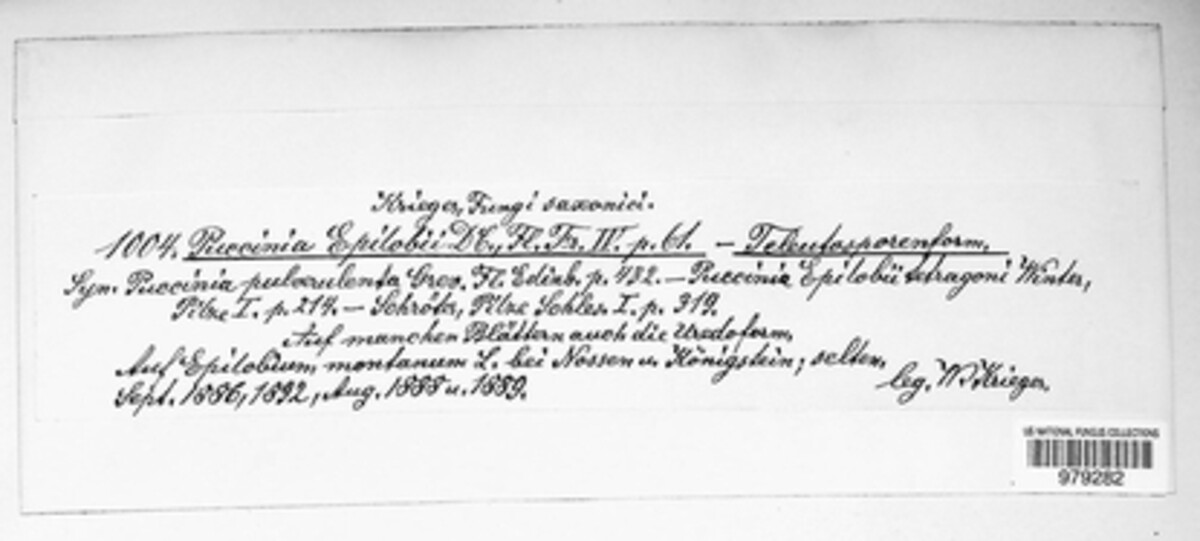 Krieger, Fungi saxonici.
1004. Puccinia Epilobii DC., Fl. Fr. VI. p. 61. — Teleutosporenform.
Syn. Puccinia pulverulenta Grev. Fl. Edinb. p. 432. — Puccinia Epilobii tetragoni Winter,
Pilze I. p. 214. — Schröter, Pilze Schles. I. p. 319.
Auf manchen Blättern auch die Uredoform.
Auf Epilobium montanum L. bei Nossen u. Königstein; selten.
Sept. 1886, 1892, Aug. 1888 u. 1889.
leg. W. Krieger.
US NATIONAL FUNGUS COLLECTIONS
979282